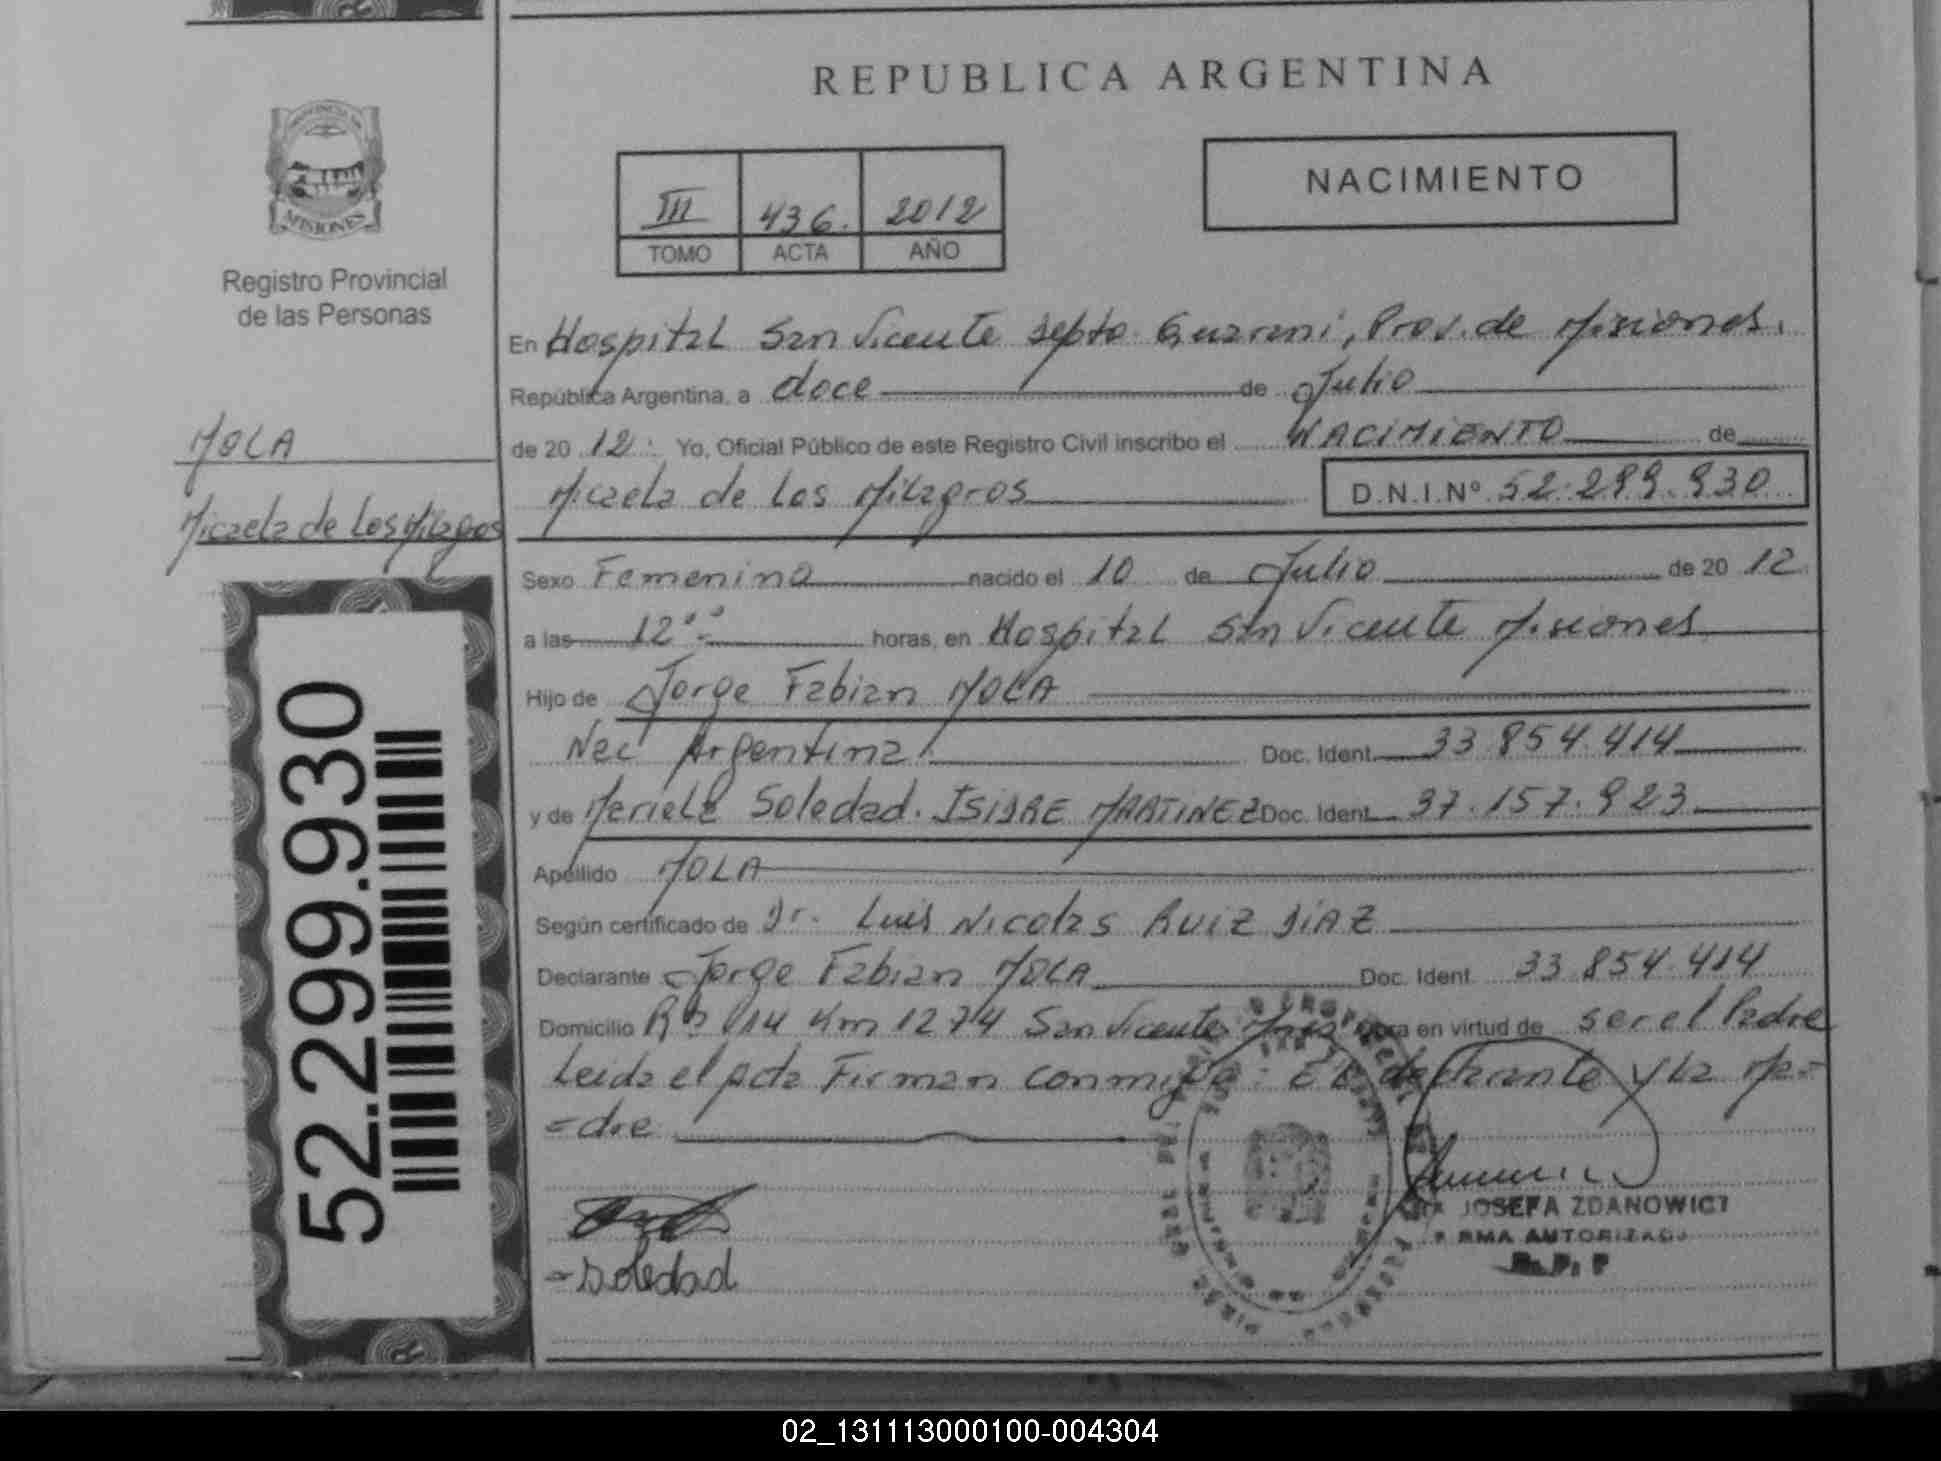 REPUBLICA ARGENTINA
MISIONES
Registro Provincial
de las Personas
III 436. 2012
TOMO ACTA AÑO
NACIMIENTO
MOLA
Micaela de Los Milagros
52.299.930
En Hospital San Vicente Depto. Guarani, Prov. de Misiones.
República Argentina, a doce de Julio
de 20 12. Yo, Oficial Público de este Registro Civil inscribo el NACIMIENTO de
Micaela de Los Milagros D.N.I.Nº 52.299.930
Sexo Femenino nacido el 10 de Julio de 20 12
a las 12 horas, en Hospital San Vicente Misiones
Hijo de Jorge Fabian MOLA
Nac Argentina. Doc. Ident. 33.854.414
y de Mariela Soledad. ISIDRE MARTINEZ Doc. Ident. 37.157.923
Apellido MOLA
Según certificado de Dr. Luis Nicolas RUIZ DIAZ
Declarante Jorge Fabian MOLA Doc. Ident. 33.854.414
Domicilio 14 Km 1274 San Vicente Mnes Obra en virtud de ser el Padre
Leida el Acta Firman conmigo: El declarante y La Ma=
=dre
JOSEFA ZDANOWICZ
FIRMA AUTORIZADA
R.P.P
=Soledad
02_131113000100-004304